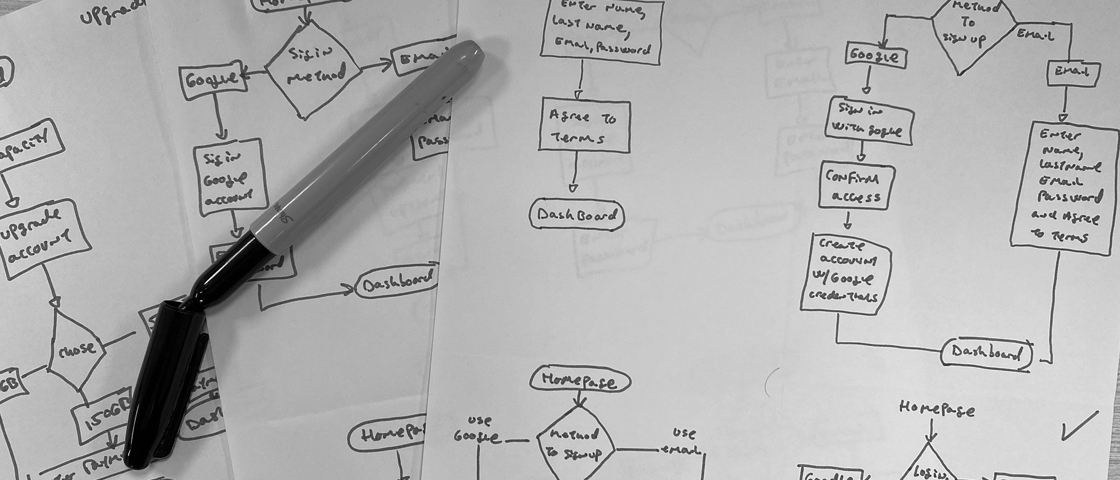 upgrad
apacity
upgrade
account
chose
GB
150GB
Sigin
method
Google
Email
Sigin
Google
account
Dashboard
Homepa
Enter Name,
Last name,
Email, Password
Agree To
Terms
DashBoard
Homepage
Method
To Signup
use
Google
use
email
Method
To
sign up
Email
Google
Email
Sign in
with google
Confirm
access
Create
account
w/Google
credentials
Enter
Name,
Lastname
Email
Password
and Agree
to Terms
Dashboard
Homepage
Login
Google